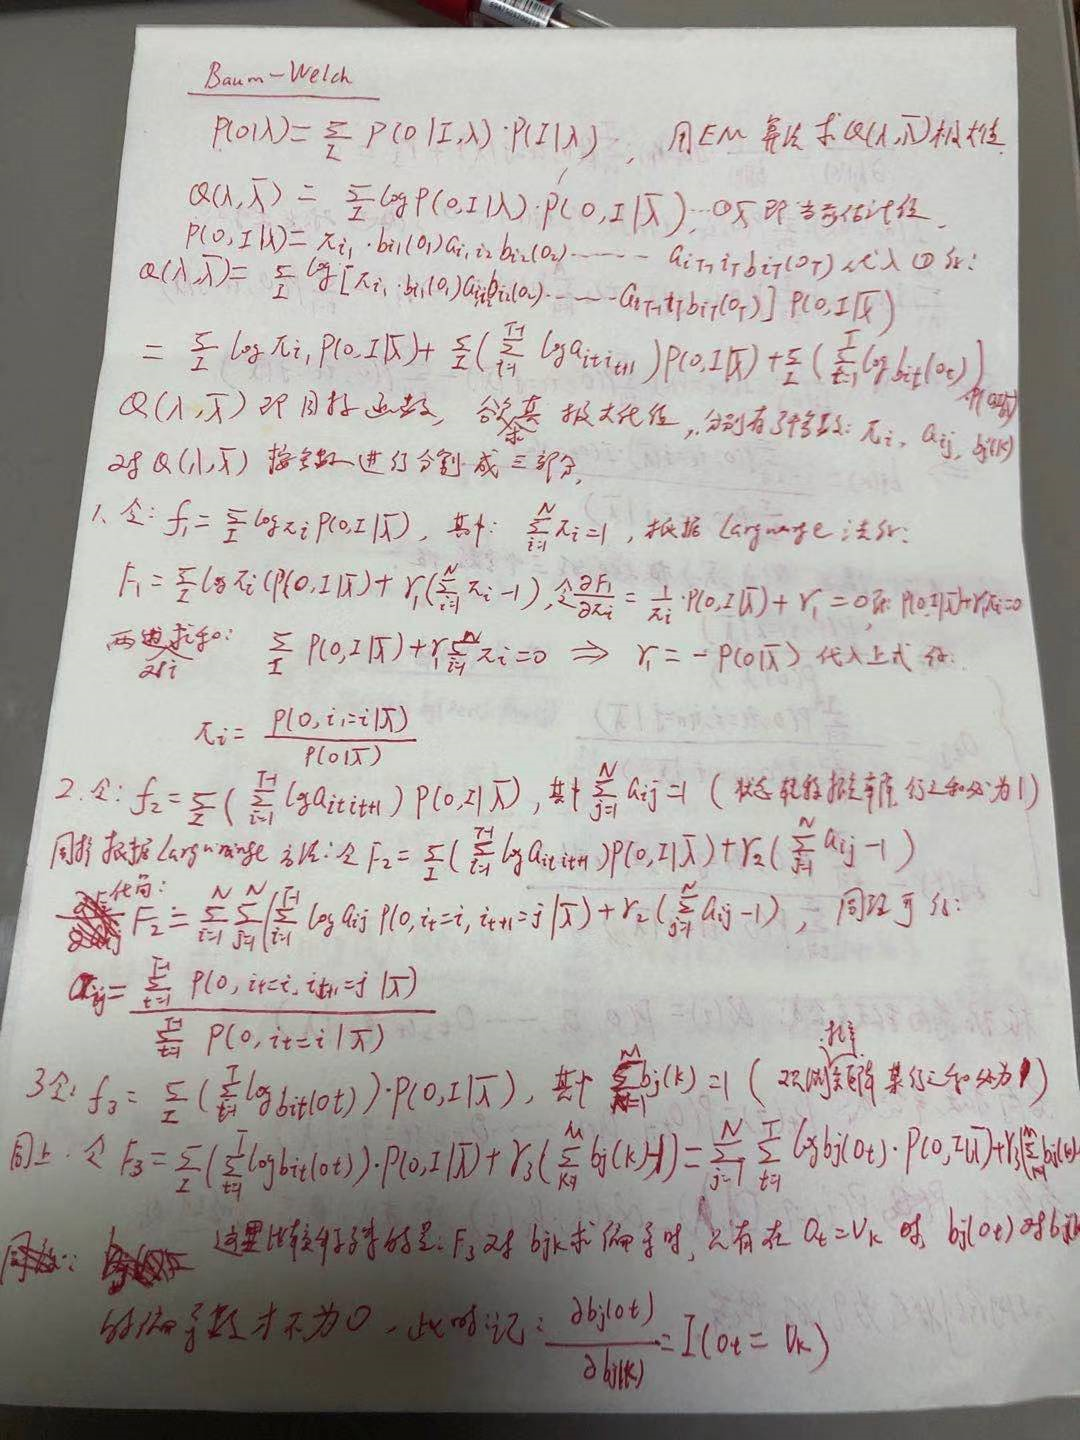 Baum-Welch
P(O|λ)= Σ_I P(O|I,λ)·P(I|λ), 用EM算法求Q(λ,λ̄)极大值.
Q(λ,λ̄) = Σ_I log P(O,I|λ)·P(O,I|λ̄)…① λ̄即当前估计值.
P(O,I|λ)= π_{i1}·b_{i1}(o1)a_{i1 i2}b_{i2}(o2)…… a_{iT-1 iT}b_{iT}(oT) 代入①和:
Q(λ,λ̄)= Σ_I log[π_{i1}·b_{i1}(o1)a_{i1 i2}b_{i2}(o2)……a_{iT-1 iT}b_{iT}(oT)] P(O,I|λ̄)
= Σ_I log π_{i1} P(O,I|λ̄)+ Σ_I(Σ_{t=1}^{T-1} log a_{it it+1})P(O,I|λ̄)+Σ_I(Σ_{t=1}^{T} log b_{it}(ot))P(O,I|λ̄)
Q(λ,λ̄)即目标函数, 欲求其极大化值, 分别有3个参数: πi, aij, bj(k)
对Q(λ,λ̄)按参数进行分割成三部分.
1. 令: f1= Σ_I log πi P(O,I|λ̄), 其中: Σ_{i=1}^{N} πi=1, 根据 Largnarge 法得:
F1= Σ_I log πi (P(O,I|λ̄)+ γ1(Σ_{i=1}^{N} πi-1), 令∂F1/∂πi = 1/πi·P(O,I|λ̄)+ γ1 = 0 即: P(O,I|λ̄)+γ1πi=0
两边对i求和: Σ_I P(O,I|λ̄)+γ1 Σ_{i=1}^{N} πi=0 ⇒ γ1= -P(O|λ̄) 代入上式得:
πi= P(O,i1=i|λ̄) / P(O|λ̄)
2. 令: f2= Σ_I(Σ_{t=1}^{T-1} log a_{it it+1}) P(O,I|λ̄), 其中 Σ_{j=1}^{N} aij=1 (状态转移概率矩阵 行之和必为1)
同样根据 Largnrange 方法: 令 F2= Σ_I(Σ_{t=1}^{T-1} log a_{it it+1})P(O,I|λ̄)+γ2(Σ_{j=1}^{N} aij-1)
化简: F2= Σ_{i=1}^{N} Σ_{j=1}^{N}(Σ_{t=1}^{T-1} log aij P(O,it=i, it+1=j|λ̄)+γ2(Σ_{j=1}^{N} aij-1), 同理可得:
aij= Σ_{t=1}^{T-1} P(O,it=i,it+1=j|λ̄) / Σ_{t=1}^{T-1} P(O,it=i|λ̄)
3 令: f3= Σ_I(Σ_{t=1}^{T} log b_{it}(ot))·P(O,I|λ̄), 其中 Σ_{k=1}^{M} bj(k)=1 (观测概率矩阵某行之和必为1)
同上. 令 F3= Σ_I(Σ_{t=1}^{T} log b_{it}(ot))·P(O,I|λ̄)+γ3(Σ_{k=1}^{M} bj(k)-1)= Σ_{j=1}^{N} Σ_{t=1}^{T} log bj(ot)·P(O,I|λ̄)+γ3(Σ_{k=1}^{M} bj(k)-
这里比较特殊的是: F3对bjk求偏导时, 只有在Ot=Vk时 bj(ot)对bj(k
的偏导数才不为0. 此时记: ∂bj(ot)/∂bj(k) = I(Ot= Vk)